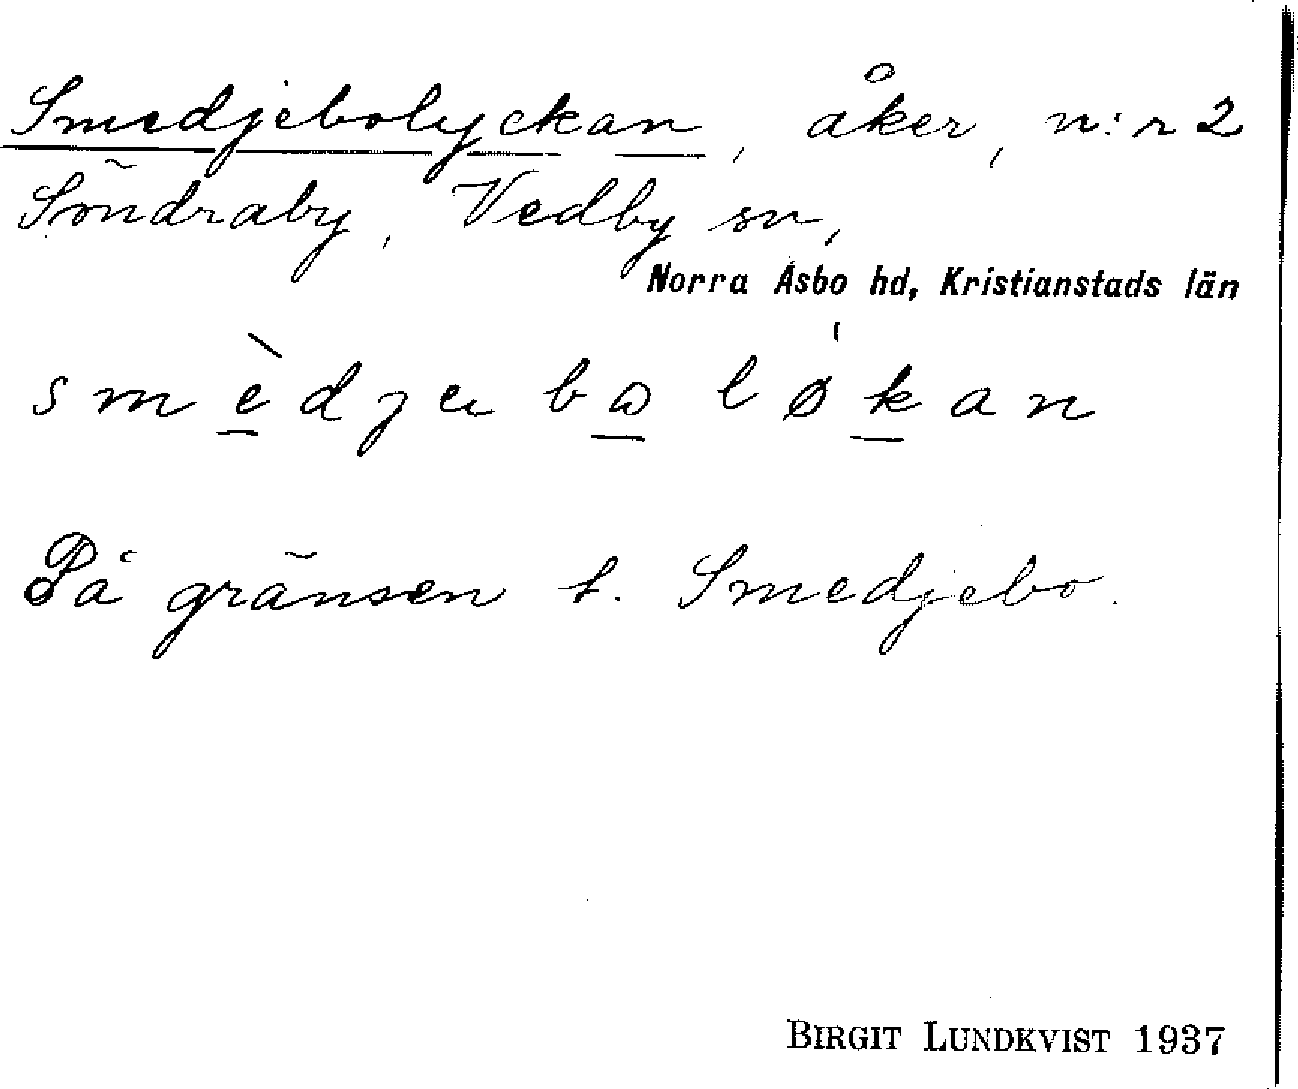 Smedjebolyckan, åker, n:r 2
Söndraby, Vedby sn,
Norra Åsbo hd, Kristianstads län
smèdjebωløkan
På gränsen t. Smedjebo.
BIRGIT LUNDKVIST 1937